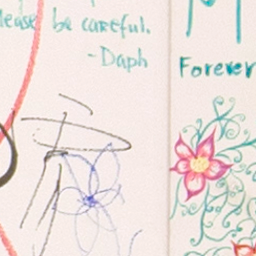 please be careful.
-Daph
Forever